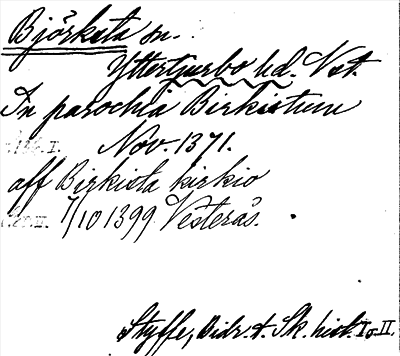 Björksta sn.
Yttertjurbo hd. Vst.
In parochia Birkistum
Nov. 1371.
aff Birkista kirkio
7/10 1399 Vesterås.
Styffe, Bidr. t. Sk. hist. I o. II.